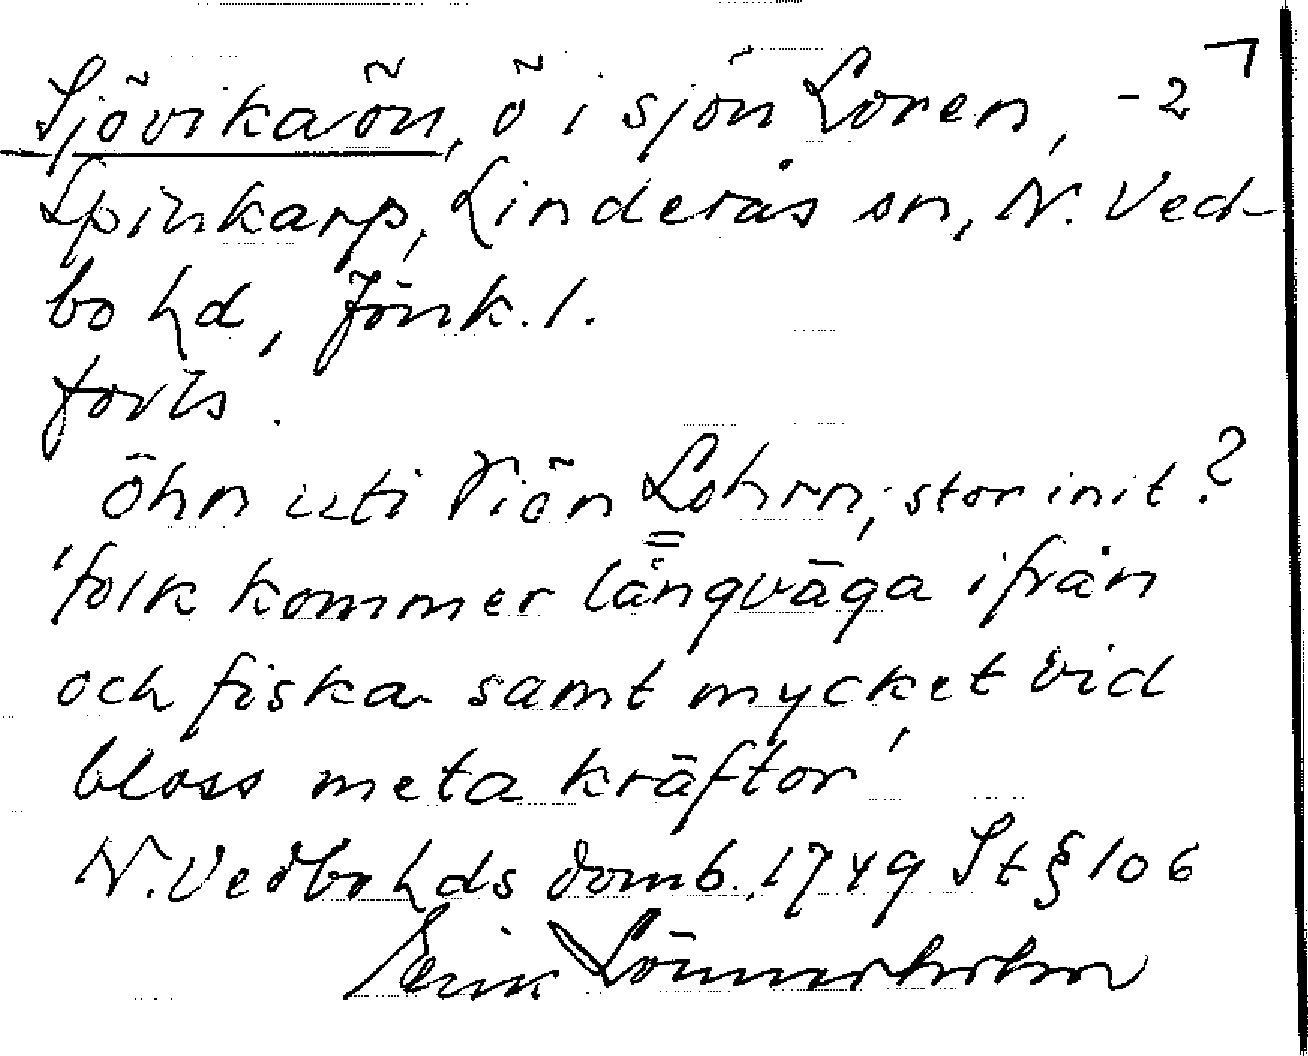 Sjövikaön, ö i sjön Loren, -2
Spinkarp, Linderås sn, N. Ved-
bo hd, Jönk. l.
forts.
öhn uti Siön Lohrn, stor init?
'folk kommer långväga ifrån
och fiska samt mycket vid
bloss meta kräftor'
N. Vedbo hds domb. 1749 St § 106
Erik Lönnerholm